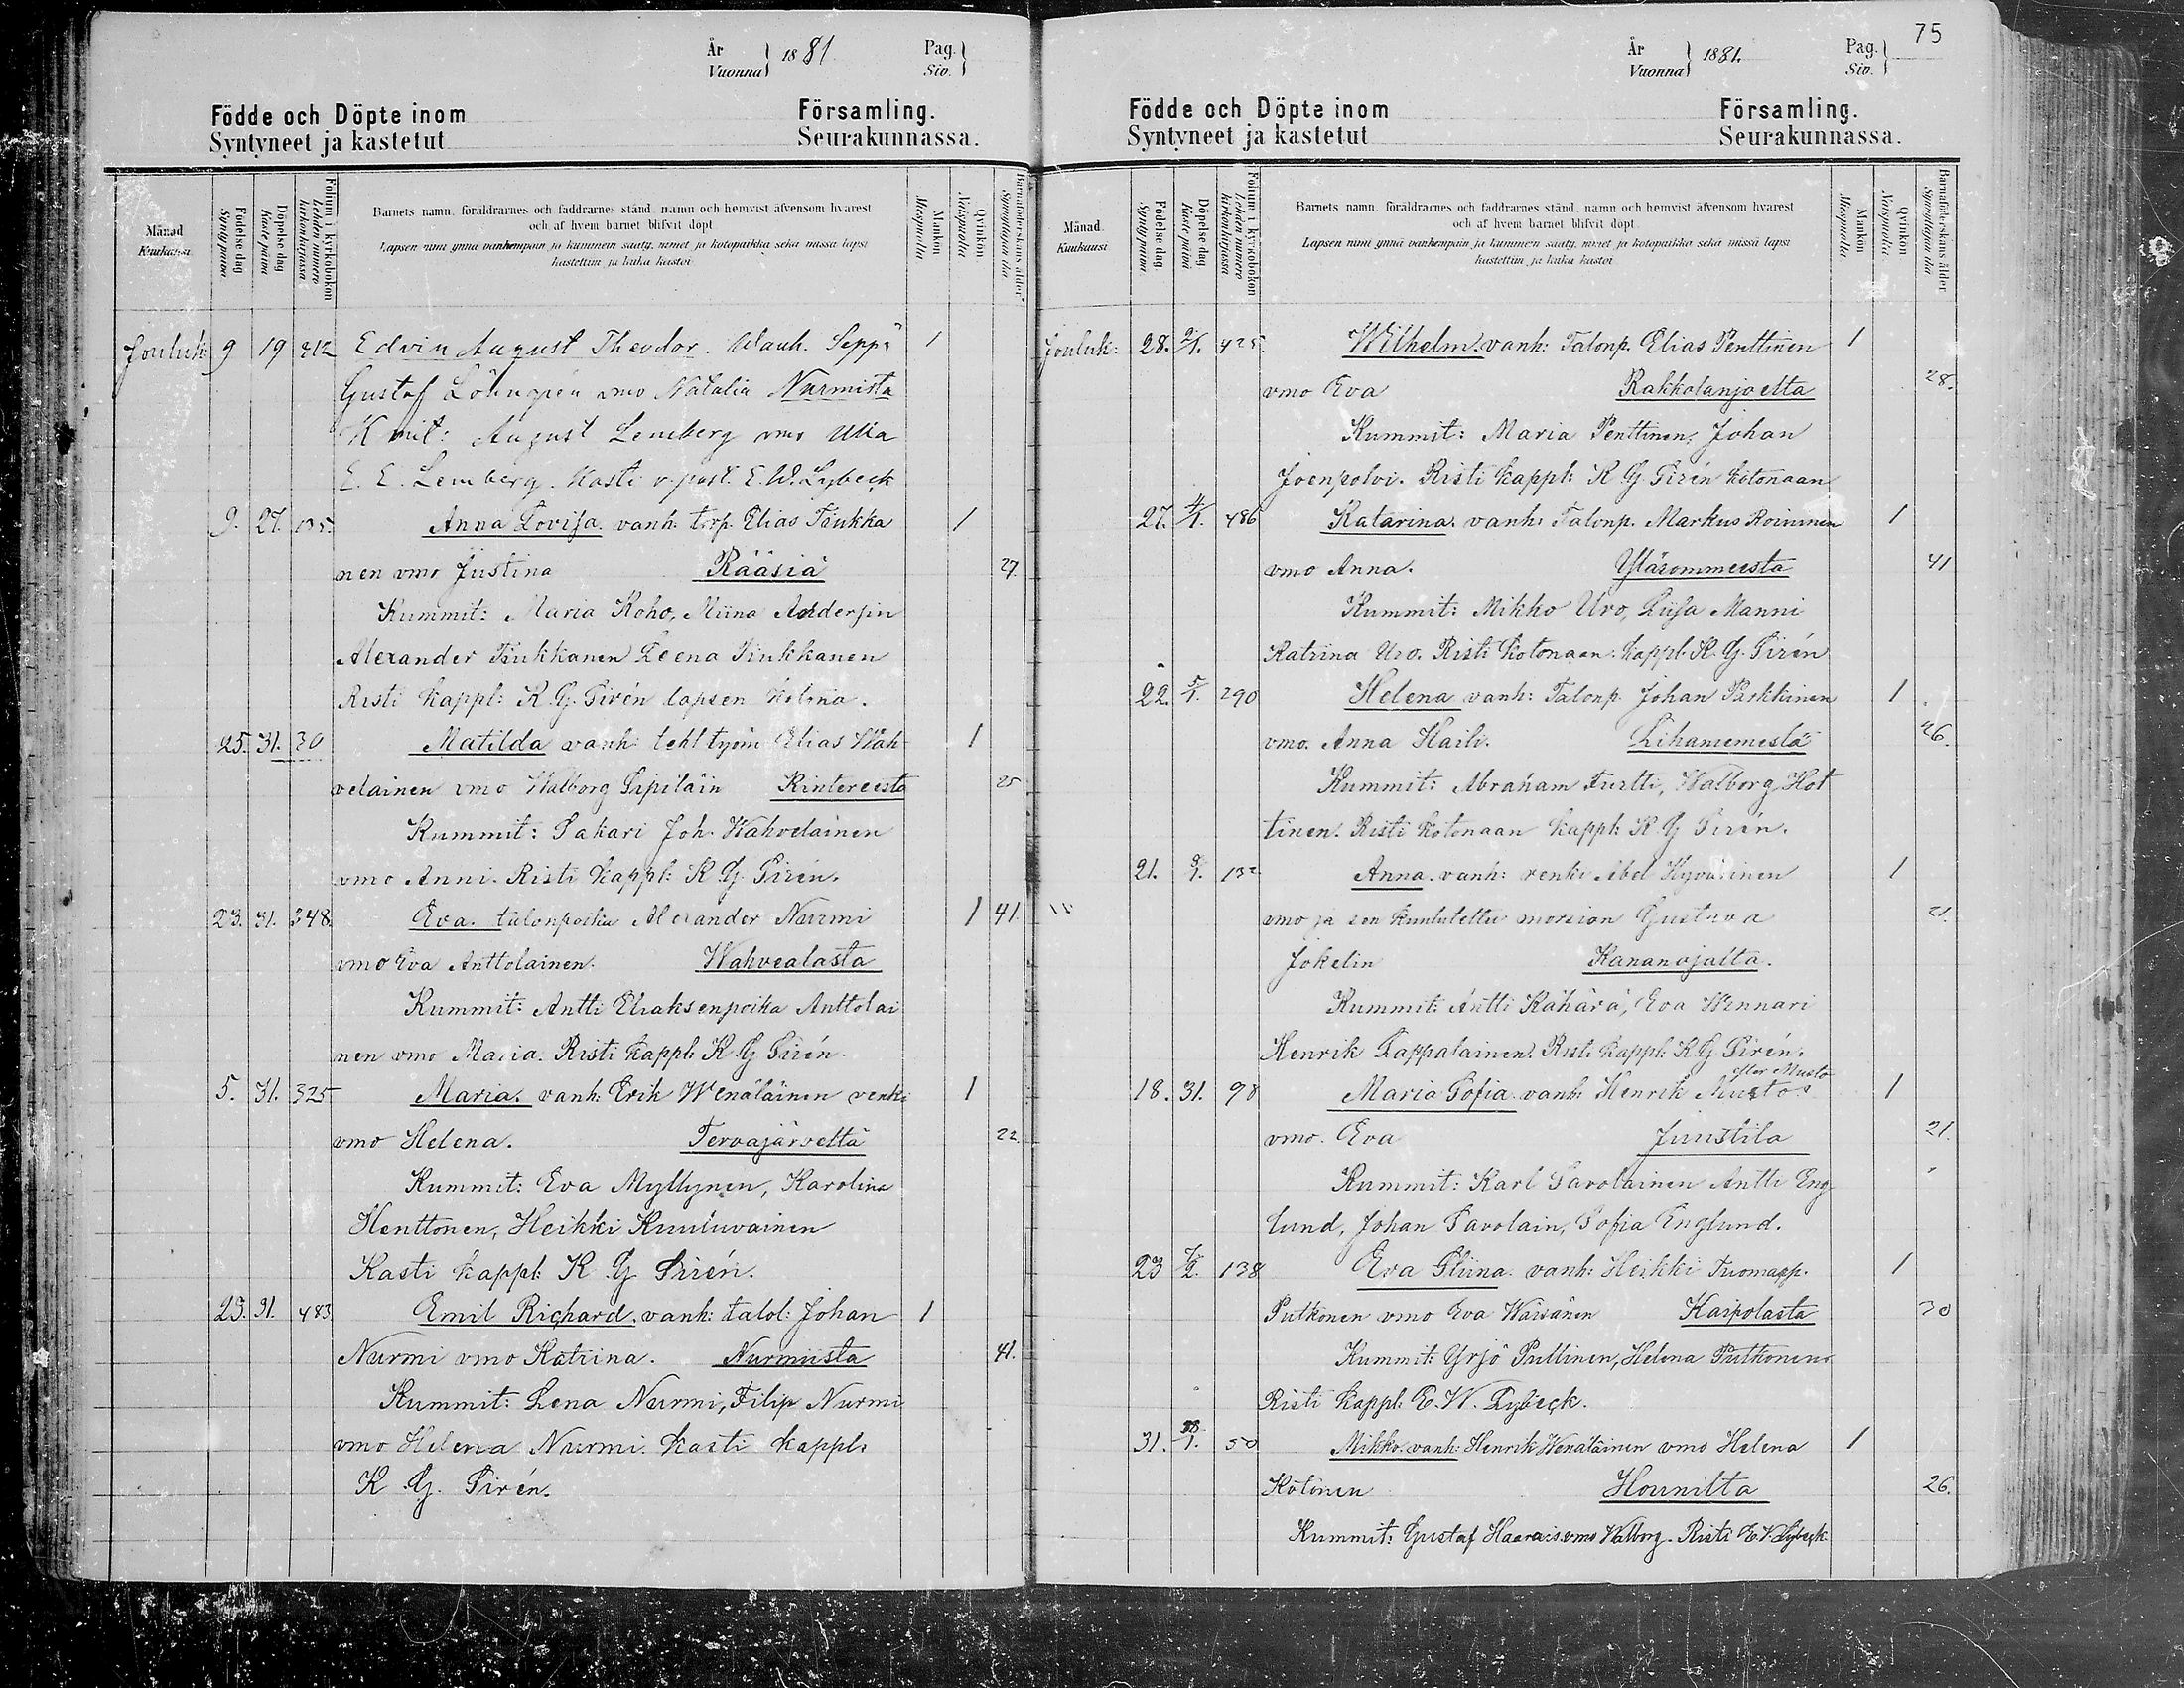 År
Vuonna 1881
Pag.
Siv.
Födde och Döpte inom Församling.
Syntyneet ja kastetut Seurakunnassa.
Månad
Kuukausi
Födelse dag
Synty päivä
Döpelse dag
Kaste päivä
Folium i kyrkoboken
Lehden numero kirkonkirjassa
Barnets namn, föräldrarnes och faddrarnes stånd, namn och hemvist äfvensom hvarest
och af hvem barnet blifvit döpt
Lapsen nimi ynnä vanhempain ja kummein sääty, nimet ja kotopaikka sekä missä lapsi
kastettiin ja kuka kastoi
Mankön
Miespuolia
Qvinkön
Vaispuolia
Barnaföderskans ålder
Synnyttäjän ikä
Jouluk: 9 19 312 Edvin August Theodor. Wanh. Seppä 1
Gustaf Löfngrén vmo Natalia Nurmista
Kmit: August Lemberg vmo Ulla
E. E. Lemberg. Kasti v. past. E. W. Lybeck
9. 27. 135. Anna Lovisa. vanh. torp. Elias Tiukka 1
nen vmo Justina Rääsiä 27.
Kummit: Maria Koho, Miina Andersin
Alexander Tiukkanen Leena Tiukkanen
Risti kappl: K. G. Sirén lapsen kotona.
25. 31. 30 Matilda vanh. Elias Wah 1
velainen vmo Walborg Sipiläin Kintereestä 25
Kummit: Sakari Joh. Wahvelainen
vmo Anni. Risti kappl: K G. Sirén.
23. 31. 348. Eva. talonpoika Alexander Nurmi 1 41.
vmo Eva Anttolainen. Wahvealasta
Kummit: Antti Eliaksenpoika Anttolai
nen vmo Maria. Risti kappl: K. G Sirén.
5. 31. 325 Maria. vanh: Erik Wenäläinen renki 1
vmo Helena. Tervajärveltä 22.
Kummit: Eva Myllynen, Karolina
Henttonen, Heikki Kuuluvainen
Kasti kappl: K G Sirén.
29. 31. 483 Emil Richard. vanh: talol: Johan 1
Nurmi vmo Katriina. Nurmiista 41.
Kummit: Lena Nurmi, Filip Nurmi
vmo Helena Nurmi. Kasti kappl:
K. G. Sirén.
75
År
Vuonna 1881.
Pag.
Siv.
Födde och Döpte inom Församling.
Syntyneet ja kastetut Seurakunnassa.
Månad.
Kuukausi
Födelse dag
Synty päivä
Döpelse dag
Kaste päivä
Folium i kyrkoboken
Lehden numero kirkonkirjassa
Barnets namn, föräldrarnes och faddrarnes stånd, namn och hemvist äfvensom hvarest
och af hvem barnet blifvit döpt
Lapsen nimi ynnä vanhempain ja kummein sääty, nimet ja kotopaikka sekä missä lapsi
kastettiin ja kuka kastoi
Mankön
Miespuolia
Qvinkön
Vaispuolia
Barnaföderskans ålder
Synnyttäjän ikä
Jouluk: 28. 2/1. 425. Wilhelm. vanh: Talonp. Elias Penttinen 1
vmo Eva Rakkolanjoelta 28.
Kummit: Maria Penttinen, Johan
Joenpolvi. Risti kappl: K G. Sirén kotonaan
27. 4/1. 486 Katarina. vanh: Talonp. Markus Roininen 1
vmo Anna. Ylärommeesta 41
Kummit: Mikko Uro, Liisa Manni
Katriina Uro. Risti kotonaan kappl. K. G. Sirén
22. 5/1. 290 Helena vanh: Talonp. Johan Parkkinen 1
vmo. Anna Haili. Lihaniemestä 26.
Kummit: Abraham Turtti, Walborg Hot
tinen. Risti kotonaan kappl: K. G Sirén.
21. 9/1. 132 Anna. vanh: renki Abel Hyvärinen 1
vmo ja sen kuulutettu morsion Gustava 21.
Jokelin Kananojalta.
Kummit: Antti Kähärä, Eva Wennari
Henrik Lappalainen. Risti kappl: K. G. Sirén.
18. 31. 98 Maria Sofia. vanh: Henrik Mustos 1
vmo. Eva Juustila 21.
Kummit: Karl Savolainen Antti Eng
lund, Johan Savolain, Sofia Englund.
23 138 Eva Stiina. vanh: Heikki Tuomaap. 1
Putkonen vmo Eva Wäisänen Kaipolasta 30
Kummit: Yrjö Pullinen, Helena Putkonen.
Risti kappl: E. W. Lybeck.
31. 50 Mikko. vanh: Henrik Wenäläinen vmo Helena 1
Kotonen Hounilta 26.
Kummit: Gustaf vmo Walborg. Risti E W Lybeck